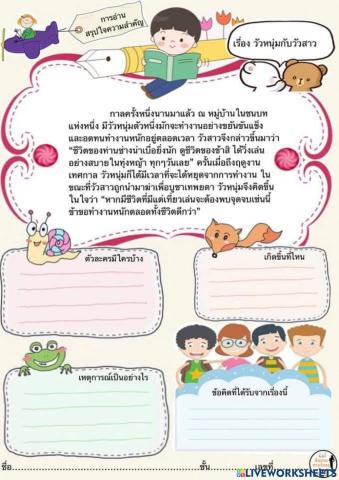 การอ่าน
สรุปใจความสำคัญ
เรื่อง วัวหนุ่มกับวัวสาว
กาลครั้งหนึ่งนานมาแล้ว ณ หมู่บ้านในชนบท
แห่งหนึ่ง มีวัวหนุ่มตัวหนึ่งมักจะทำงานอย่างขยันขันแข็ง
และอดทนทำงานหนักอยู่ตลอดเวลา วัวสาวจึงกล่าวขึ้นมาว่า
"ชีวิตของท่านช่างน่าเบื่อยิ่งนัก ดูชีวิตของข้าสิ ได้วิ่งเล่น
อย่างสบายในทุ่งหญ้า ทุกๆวันเลย" ครั้นเมื่อถึงฤดูงาน
เทศกาล วัวหนุ่มก็ได้มีเวลาที่จะได้หยุดจากการทำงาน ใน
ขณะที่วัวสาวถูกนำมาฆ่าเพื่อบูชาเทพยดา วัวหนุ่มจึงคิดขึ้น
ในใจว่า "หากมีชีวิตที่มีแต่เที่ยวเล่นจะต้องพบจุดจบเช่นนี้
ข้าขอทำงานหนักตลอดทั้งชีวิตดีกว่า"
ตัวละครมีใครบ้าง
เกิดขึ้นที่ไหน
เหตุการณ์เป็นอย่างไร
ข้อคิดที่ได้รับจากเรื่องนี้
ชื่อ ชั้น เลขที่
LIVEWORKSHEETS